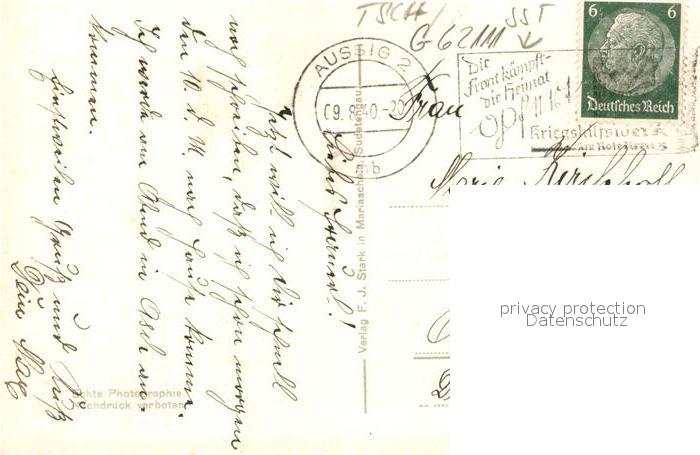 TSCH/ SST
G62111
AUSSIG 2
09.8.40.-20
b
Die
Front kämpft-
die Heimat
opfert
Kriegshilfswerk
6 6
Deutsches Reich
Frau
Marie Kirchhoff
Verlag F. J. Stark in Mariaschein, Sudetengau
Jetzt will ich Dir schnell
noch schreiben, daß ich schon morgen
den 10. d. M nach Hause komme.
Ich werde am Abend in Asch an-
kommen.
Einstweilen Gruß und Kuß
Dein
Echte Photographie
Nachdruck verboten
privacy protection
Datenschutz